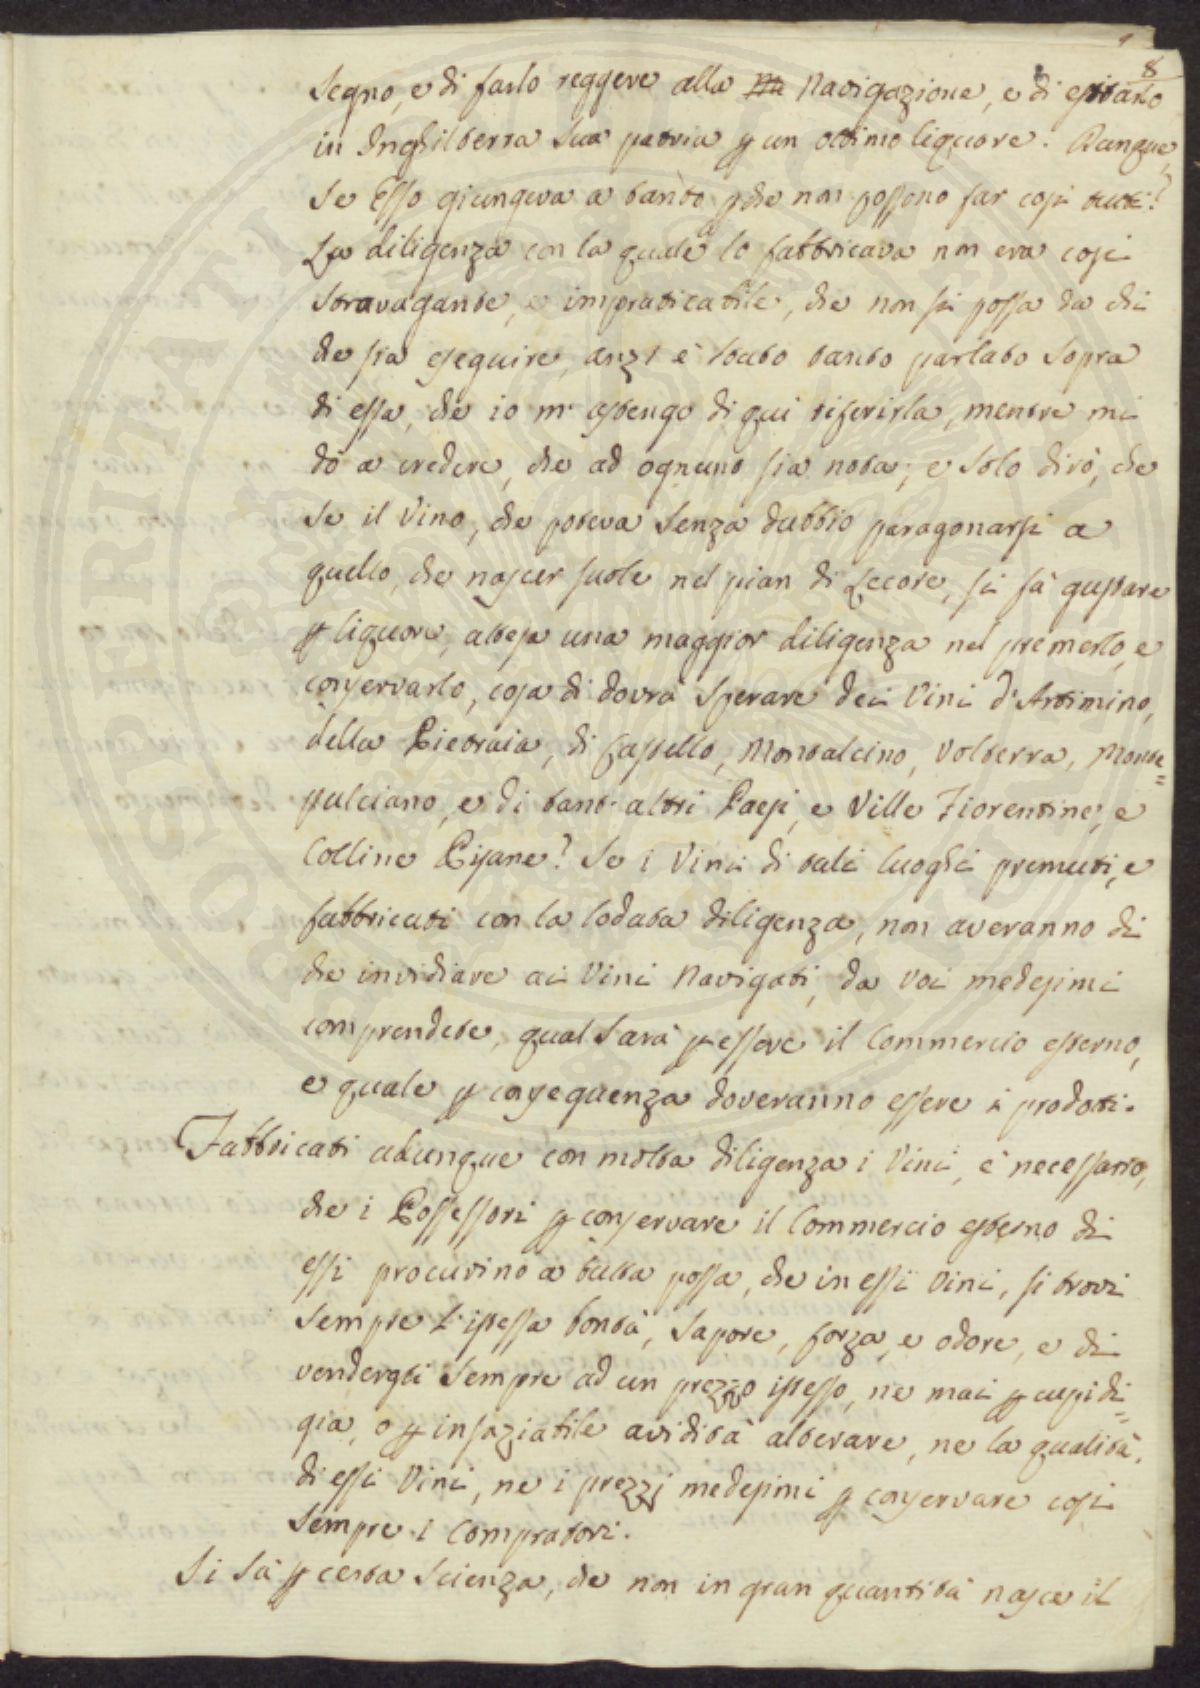 8
Segno, e di farlo reggere alla Navigazione, e di esitarlo
in Inghilterra sua patria p un ottimo liquore. Dunque,
Se Esso giungeva a tanto pche non possono far così tutti?
La diligenza con la quale lo fabbricava non era così
stravagante, e impraticabile, che non si possa da chi
che sia eseguire, anzi è stato tanto parlato sopra
di essa, che io m'astengo di qui riferirla, mentre mi
dò a credere, che ad ognuno sia nota; e solo dirò, che
se il Vino, che poteva senza dubbio paragonarsi a
quello, che nascer suole nel pian di Lecore, si fà gustare
p liquore, attesa una maggior diligenza nel premerlo, e
conservarlo, cosa di dovrà sperare dei Vini d'Artimino,
della Pietraia, di Castello, Montalcino, Volterra, Monte=
pulciano, e di tant'altri Paesi, e Ville Fiorentine, e
Colline Pisane? Se i Vini di tali luoghi premuti, e
fabbricati con la lodata diligenza, non averanno di
che invidiare ai Vini Navigati, da voi medesimi
comprendete, qual sarà p essere il Commercio esterno,
e quale p conseguenza doveranno essere i prodotti.
Fabbricati adunque con molta diligenza i Vini, è necessario,
che i Possessori p conservare il Commercio esterno di
essi procurino a tutta possa, che in essi Vini, si trovi
sempre l'istessa bontà, sapore, forza, e odore, e di
vendergli sempre ad un prezzo istesso, ne mai p cupidi=
gia, o p insaziabile avidità alterare, ne la qualità,
di essi Vini, ne i prezzi medesimi p conservare così
sempre i Compratori.
Si sà p certa scienza, che non in gran quantità nasce il